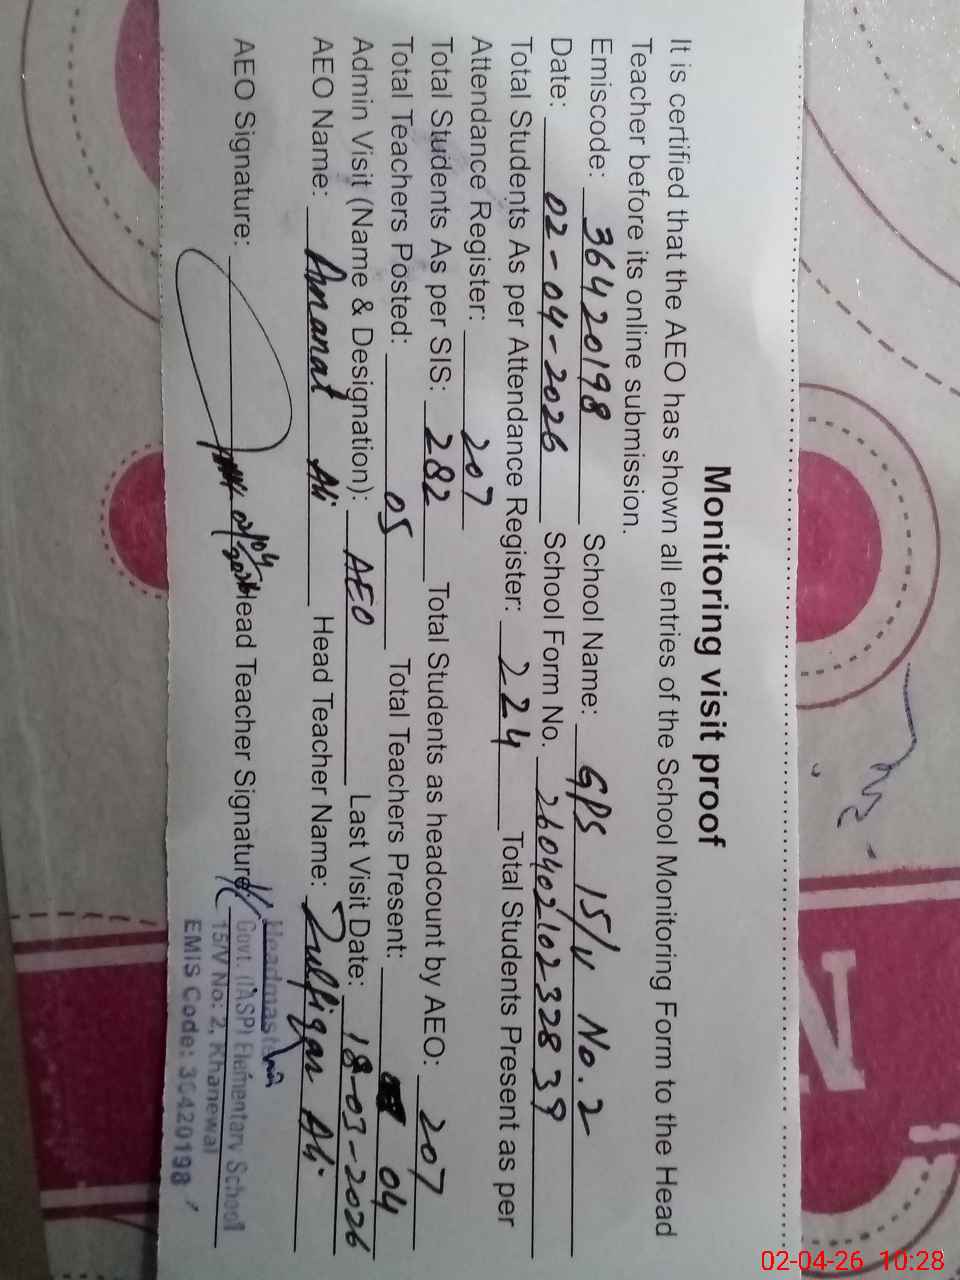 Monitoring visit proof
It is certified that the AEO has shown all entries of the School Monitoring Form to the Head
Teacher before its online submission.
Emiscode: 36420198 School Name: GPS 15/V No. 2
Date: 02-04-2026 School Form No. 26040210232839
Total Students As per Attendance Register: 224 Total Students Present as per
Attendance Register: 207
Total Students As per SIS: 282 Total Students as headcount by AEO: 207
Total Teachers Posted: 05 Total Teachers Present: 04
Admin Visit (Name & Designation): AEO Last Visit Date: 18-03-2026
AEO Name: Amanat Ali Head Teacher Name: Zulfiqar Ali
AEO Signature: 02/04/2026 Head Teacher Signature
Headmaster
Govt. (IASP) Elementary School
15/V No: 2, Khanewal
EMIS Code: 36420198
02-04-26 10:28